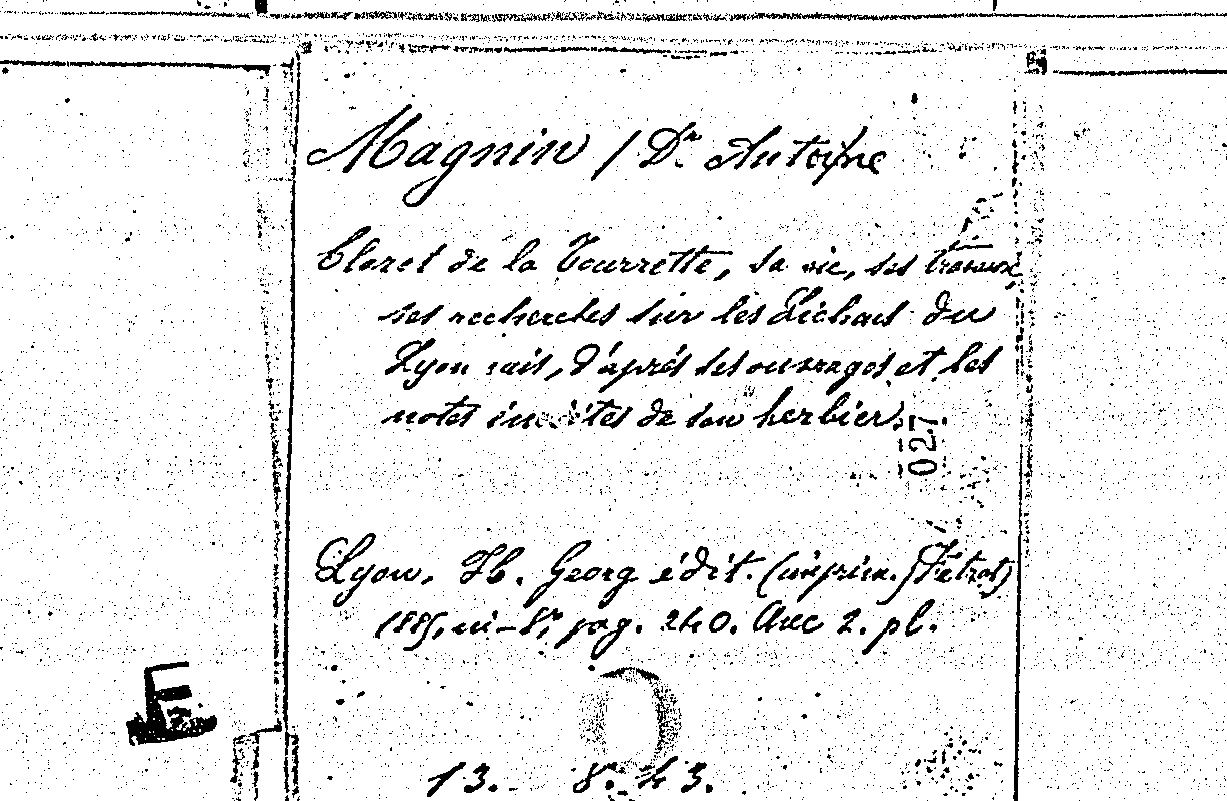 Magnin / Dr. Antoine
Claret de la Tourrette, sa vie, ses travaux,
ses recherches sur les Lichens du
Lyonnais, d'après ses ouvrages et les
notes inédites de son herbier.
027
Lyon, H. Georg édit. (imprim. J.
1885, in-8º, pag. 240. Avec 2. pl.
E
13. 8º. 43.